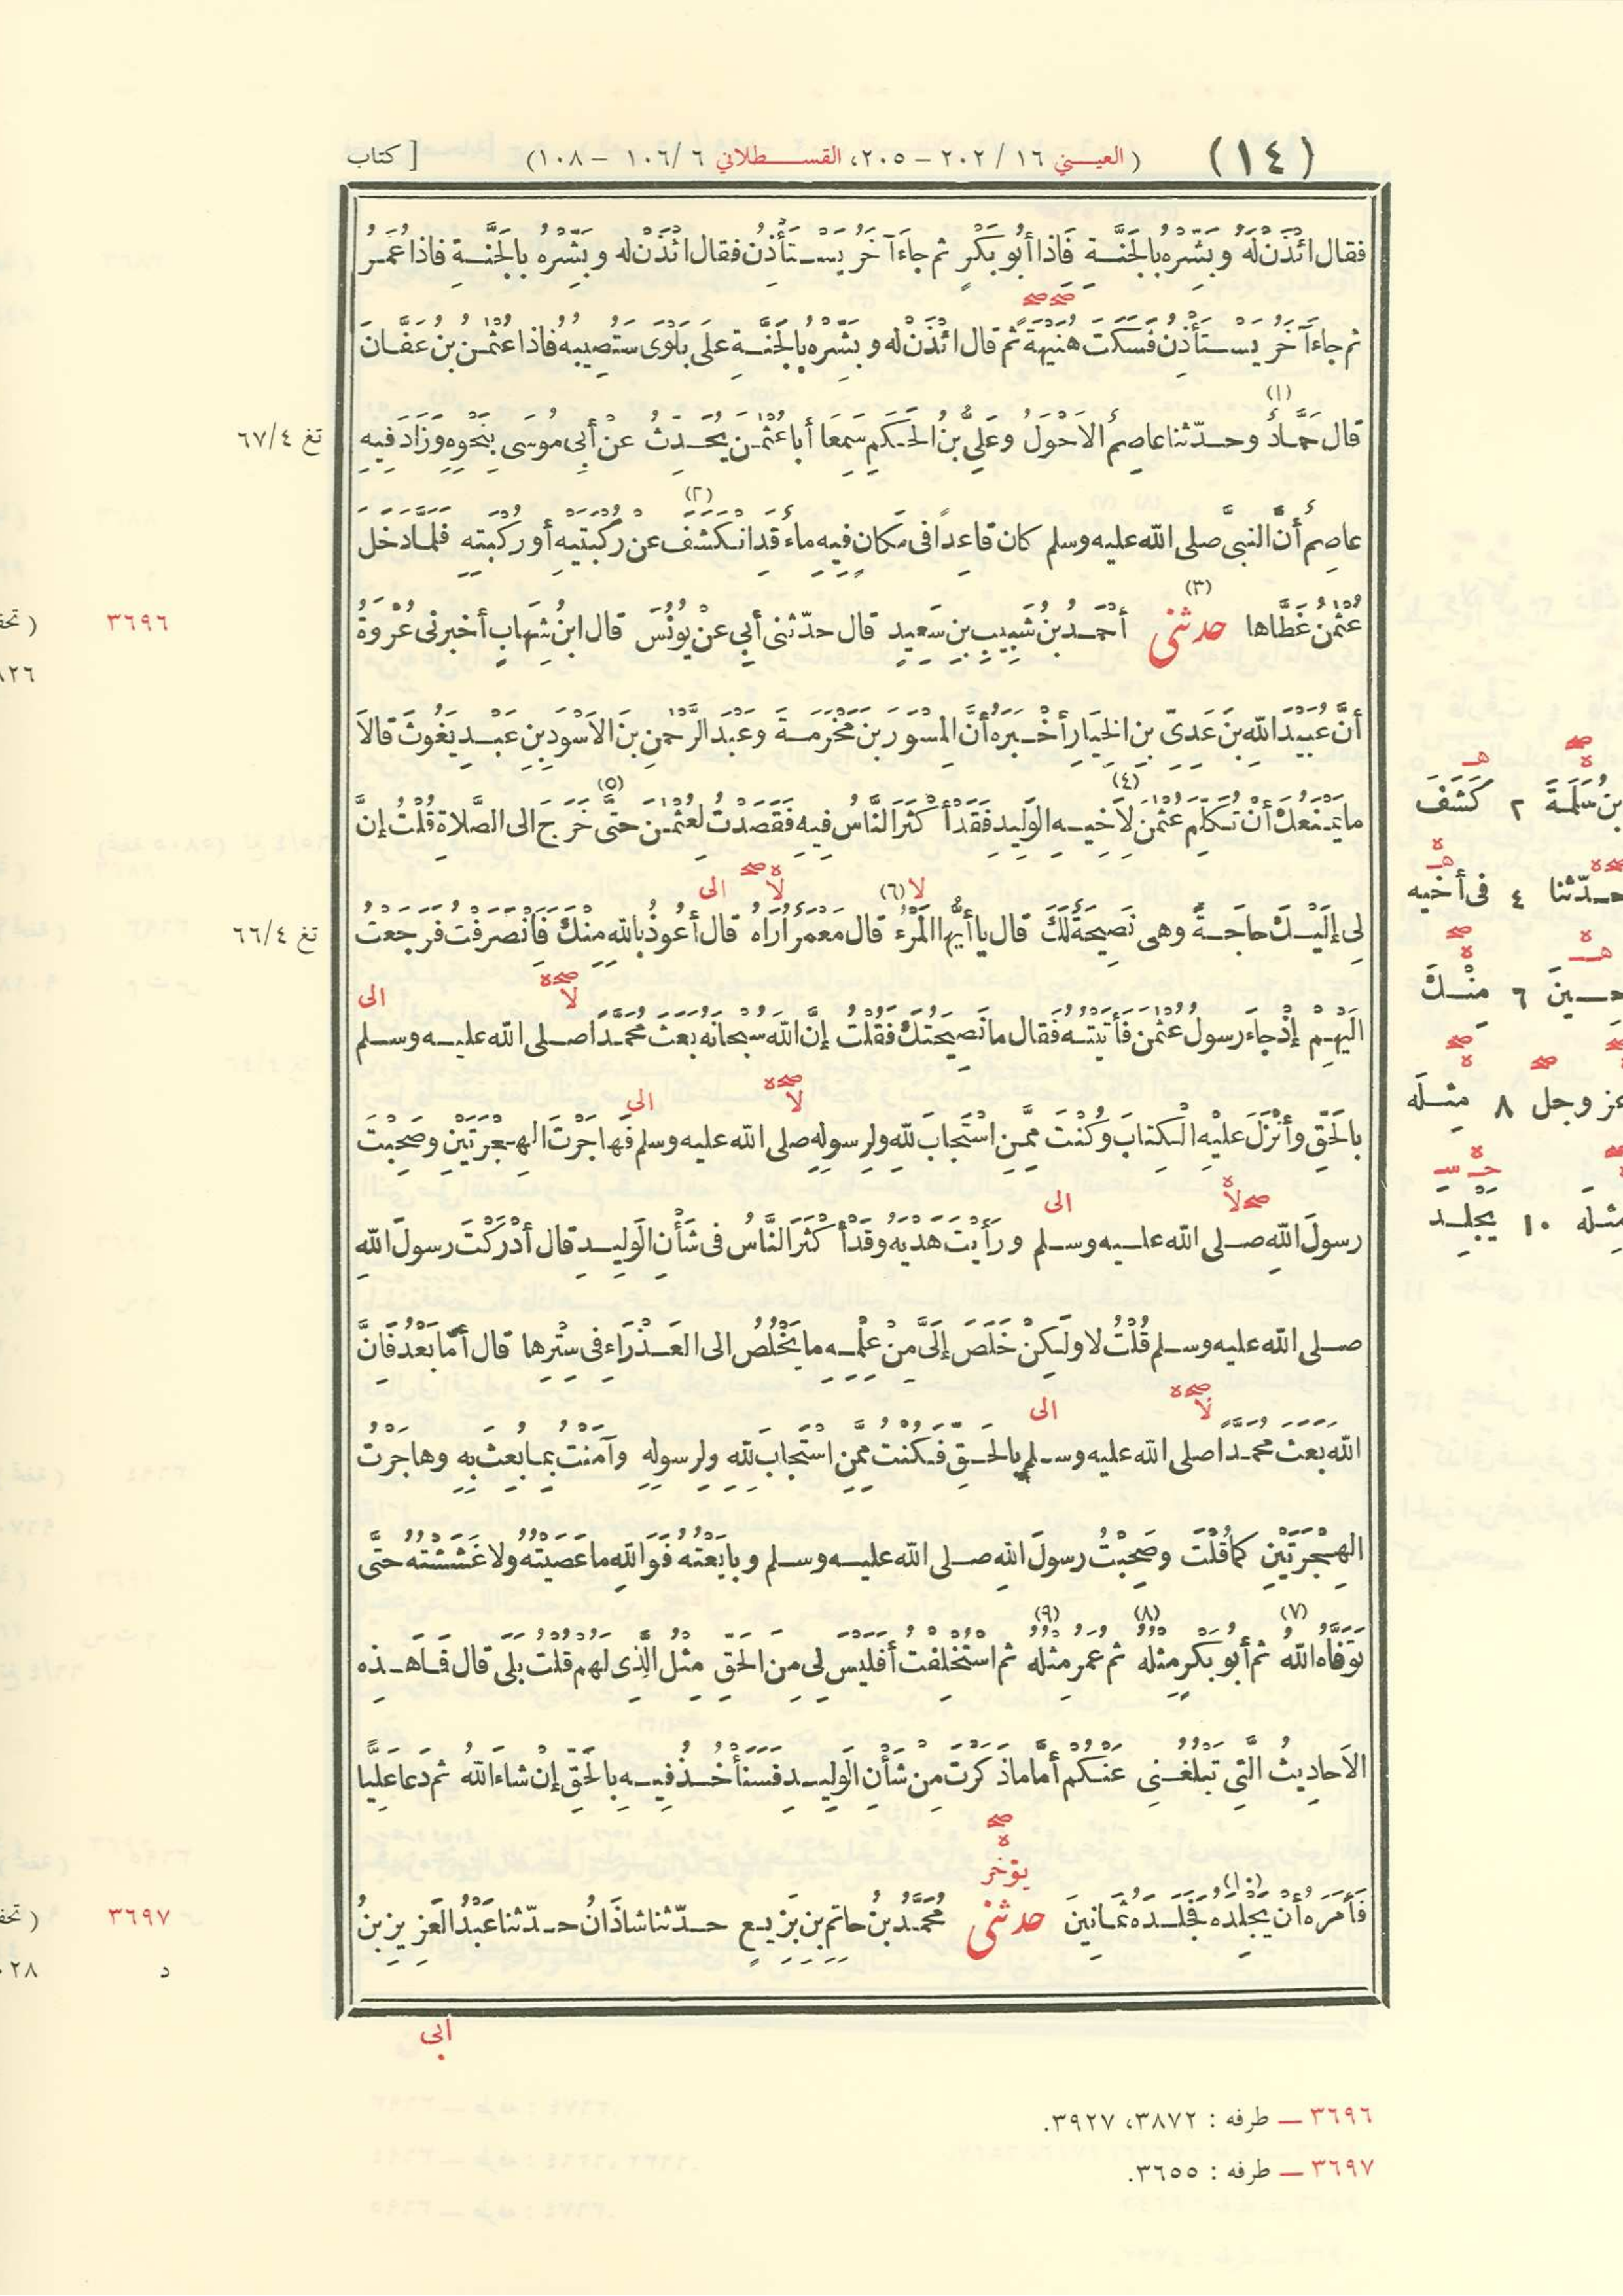 (١٤) ( العيني ١٦ / ٢٠٢ – ٢٠٥، القسطلاني ٦ /١٠٦ – ١٠٨) [ كتاب
فقال ائْذَنْ لَهُ وبَشِّرْهُ بالجَنَّةِ فَاذا أَبُو بَكْرٍ ثم جاءَ آخَرُ يَسْتَأْذِنُ فقال ائْذَنْ له وبَشِّرْهُ بالجَنَّةِ فاذا عُمَرُ
ثم جاءَ آخَرُ يَسْتَأْذِنُ فَسَكَتَ هُنَيْهَةً ثم قال ائْذَنْ له وبَشِّرْهُ بالجَنَّةِ علَى بَلْوَى سَتُصِيبُهُ فاذا عُثْمٰنُ بنُ عَفَّانَ
(١)
قال حَمَّادٌ وحدّثنا عاصِمٌ الاَحْوَلُ وعَلِيُّ بنُ الحَكَمِ سَمِعَا أَبا عُثْمٰنَ يُحَدِّثُ عنْ أَبِى موسَى بِنَحْوِهِ وَزَادَ فِيهِ
تغ ٦٧/٤
(٢)
عاصِمٌ أَنَّ النبىَّ صلى الله عليه وسلم كان قاعِدًا فى مَكَانٍ فِيهِ ماءٌ قَدِ انْكَشَفَ عن رُكْبَتَيْهِ أو رُكْبَتِهِ فَلَمَّا دَخَلَ
(٣)
عُثْمٰنُ غَطَّاها حدثنى أَحْمَدُ بنُ شَبِيبِ بنِ سَعِيدٍ قال حدّثنى أَبِي عنْ يُونُسَ قال ابنُ شِهَابٍ أخبرنى عُرْوَةُ
٣٦٩٦ ( تحف
أَنَّ عُبَيْدَ اللهِ بنَ عَدِىِّ بنِ الخِيَارِ أَخْبَرَهُ أَنَّ المِسْوَرَ بنَ مَخْرَمَةَ وعَبْدَ الرَّحْمٰنِ بنَ الاَسْوَدِ بنِ عَبْدِ يَغُوثَ قالاَ
(٤) (٥)
ما يَمْنَعُكَ أَنْ تُكَلِّمَ عُثْمٰنَ لِاَخِيهِ الوَلِيدِ فَقَدْ أَكْثَرَ النَّاسُ فِيهِ فَقَصَدْتُ لِعُثْمٰنَ حتَّى خَرَجَ الى الصَّلاةِ قُلْتُ إنَّ
لا (٦) لا صح ه الى
لِى إلَيْكَ حاجَةً وهى نَصِيحَةٌ لَكَ قال يا أَيُّها المَرْءُ قال مَعْمَرٌ أُرَاهُ قال أَعُوذُ باللهِ مِنْكَ فَانْصَرَفْتُ فَرَجَعْتُ
تغ ٦٦/٤
لا صح ه الى
الَيْهِمْ إذْ جاءَ رسولُ عُثْمٰنَ فَأَتَيْتُهُ فَقال ما نَصِيحَتُكَ فَقُلْتُ إنَّ اللهَ سُبْحانَهُ بَعَثَ مُحَمَّدًا صلى الله عليه وسلم
لا صح ه الى
بالحَقِّ وأَنْزَلَ عليْهِ الْكِتابَ وكُنْتَ مِمَّنِ اسْتَجابَ لِلّٰهِ ولِرسولِهِ صلى الله عليه وسلم فَهاجَرْتَ الهِجْرَتَيْنِ وصَحِبْتَ
صح لا ه الى
رسولَ اللهِ صلى الله عليه وسلم ورَأَيْتَ هَدْيَهُ وقَدْ أَكْثَرَ النَّاسُ فى شَأْنِ الوَلِيدِ قال أَدْرَكْتَ رسولَ اللهِ
صلى الله عليه وسلم قُلْتُ لا ولَكِنْ خَلَصَ إلَىَّ مِنْ عِلْمِهِ ما يَخْلُصُ الى العَذْرَاءِ فى سِتْرِها قال أَمَّا بَعْدُ فَانَّ
لا صح ه الى
اللهَ بَعَثَ مُحَمَّدًا صلى الله عليه وسلم بالحَقِّ فَكُنْتُ مِمَّنِ اسْتَجابَ لِلّٰهِ ولِرسولِهِ وآمَنْتُ بِمَا بُعِثَ بِهِ وهاجَرْتُ
الهِجْرَتَيْنِ كما قُلْتَ وصَحِبْتُ رسولَ اللهِ صلى الله عليه وسلم وبايَعْتُهُ فَوَاللهِ ما عَصَيْتُهُ ولا غَشَشْتُهُ حتَّى
(٧) (٨) (٩)
تَوَفَّاهُ اللهُ ثم أَبُو بَكْرٍ مِثْلُهُ ثم عُمَرُ مِثْلُهُ ثم اسْتُخْلِفْتُ أَفَلَيْسَ لِى مِنَ الحَقِّ مِثْلُ الَّذِى لهم قُلْتُ بَلَى قال فَمَا هَذِه
الاَحادِيثُ الَّتِى تَبْلُغُنِى عَنْكُمْ أَمَّا ما ذَكَرْتَ مِنْ شَأْنِ الوَلِيدِ فَسَنَأْخُذُ فِيهِ بالحَقِّ إنْ شاءَ اللهُ ثم دَعا عَلِيًّا
صح ه يؤخر
(١٠)
فَأَمَرَهُ أَنْ يَجْلِدَهُ فَجَلَدَهُ ثَمَانِينَ حدثنى مُحَمَّدُ بنُ حاتِمِ بنِ بَزِيعٍ حدّثنا شاذَانُ حدّثنا عَبْدُ العَزِيزِ بنُ
٣٦٩٧ ( تحف
د
ابى
بن سَلَمَةَ ٢ كَشَفَ
حدّثنا ٤ فى أخيه
٦ مِنْكَ
عز وجل ٨ مِثْلَه
مِثْلَه ١٠ يَجْلِدَ
٣٦٩٦ – طرفه : ٣٨٧٢، ٣٩٢٧.
٣٦٩٧ – طرفه : ٣٦٥٥.